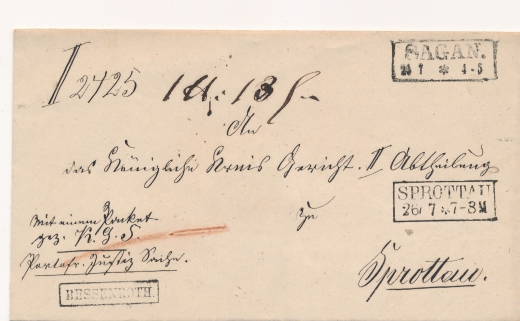 SAGAN.
25 7 * 4-5
II 2425
1 tt: 13 S.
An
das Königliche Kreis Gericht. II Abtheilung
SPROTTAU
26 7 *7-8M
zu
Mit einem Packet
gez. K. G. S.
Portofr. Justiz Sache.
Sprottau.
BESSENROTH.